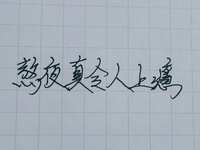 熬夜真令人上瘾